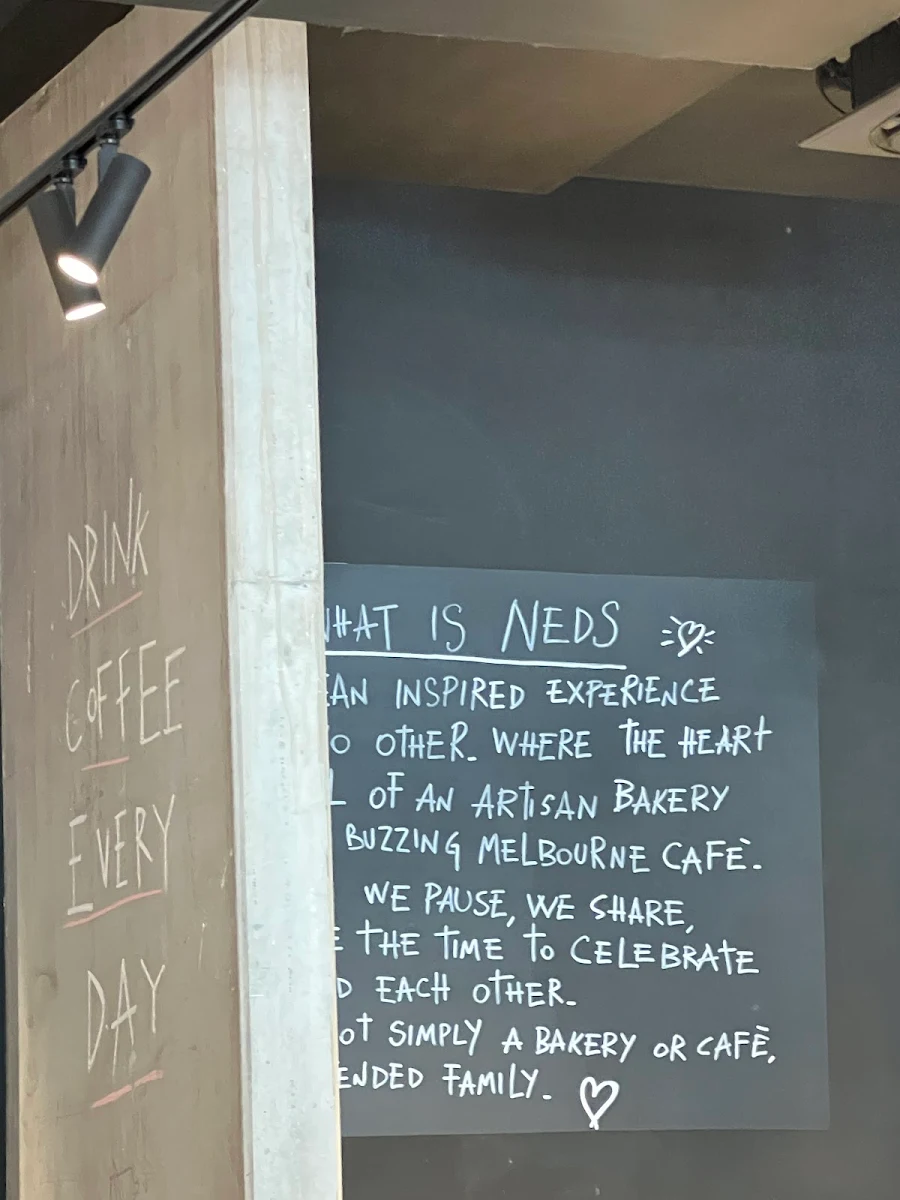 DRINK
COFFEE
EVERY
DAY
WHAT IS NEDS
EAN INSPIRED EXPERIENCE
O OTHER. WHERE THE HEART
L OF AN ARTISAN BAKERY
BUZZING MELBOURNE CAFÈ.
WE PAUSE, WE SHARE,
E THE TIME TO CELEBRATE
D EACH OTHER.
OT SIMPLY A BAKERY OR CAFÈ,
ENDED FAMILY.